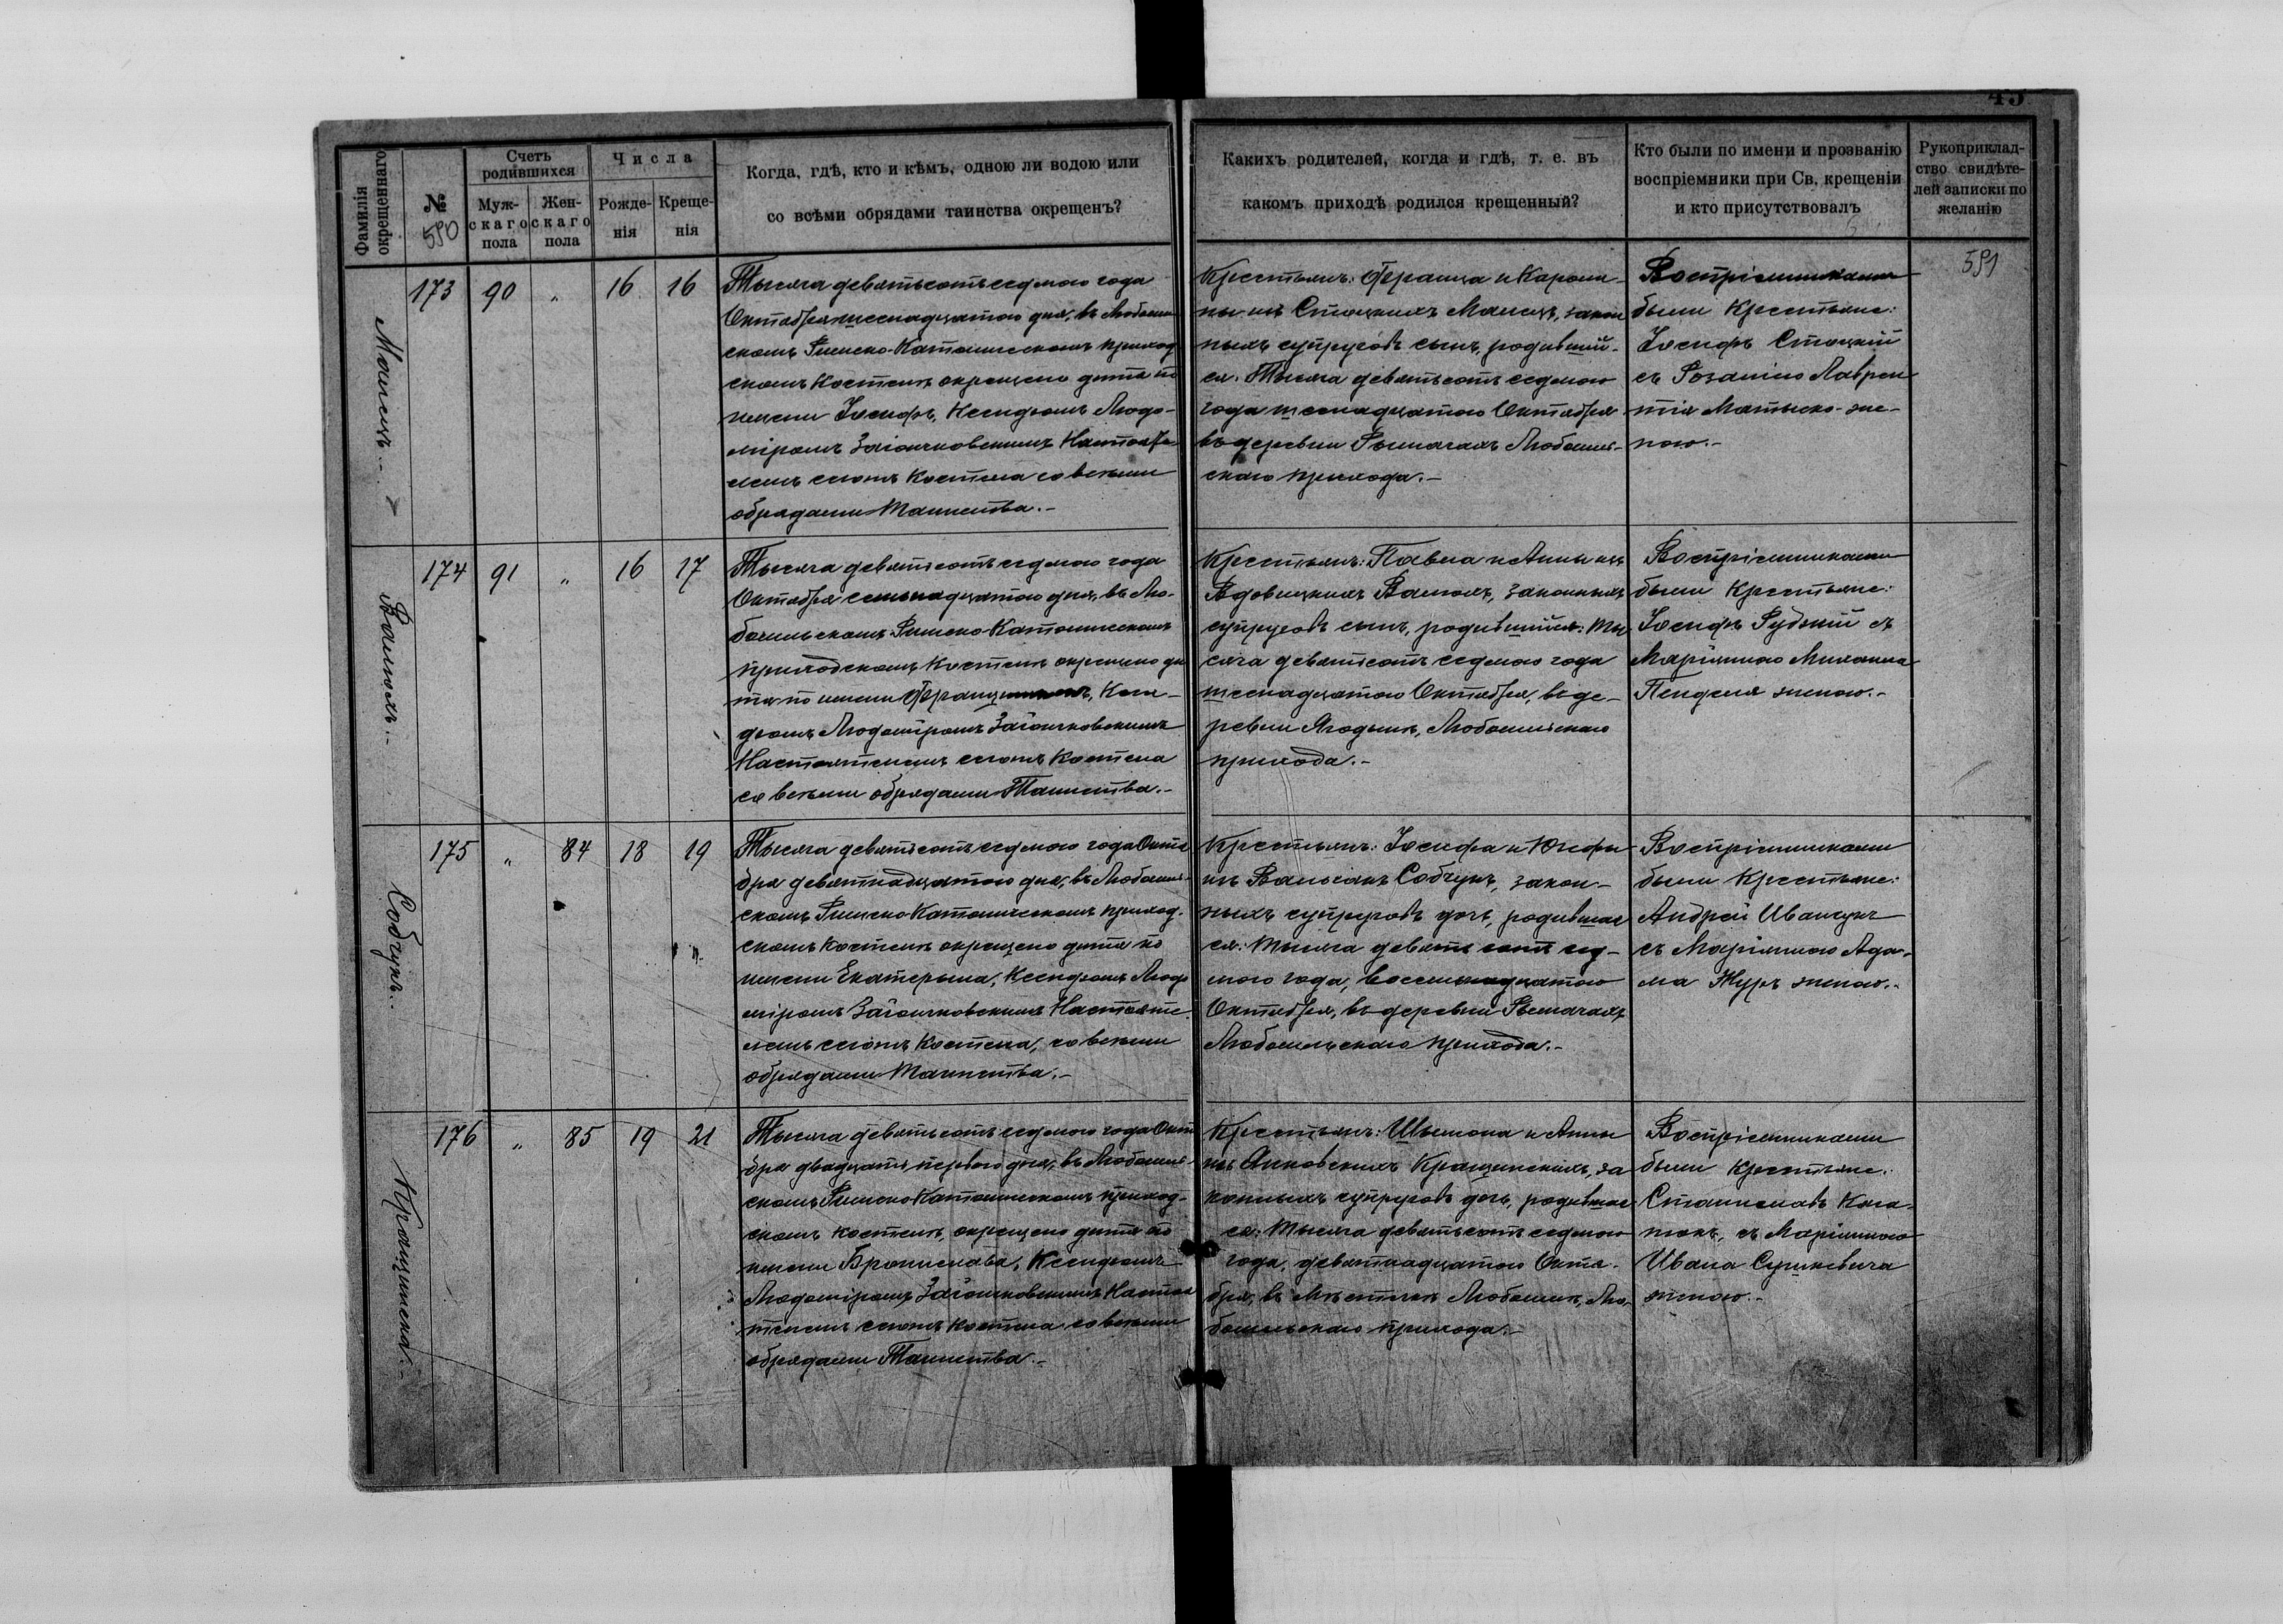 45
Фамилія окрещеннаго
№
590
Счетъ родившихся
Мужскаго пола
Женскаго пола
Числа
Рожденія
Крещенія
Когда, гдѣ, кто и кѣмъ, одною ли водою или
со всѣми обрядами таинства окрещенъ?
Какихъ родителей, когда и гдѣ, т. е. въ
какомъ приходѣ родился крещенный?
Кто были по имени и прозванію
воспріемники при Св. крещеніи
и кто присутствовалъ
Рукоприклад-
ство свидѣте-
лей записки по
желанію
591
173 90 „ 16 16
Тысяча девятьсотъ седмого года
Октября шеснадцатого дня, въ Любомль
скомъ Римско-Католическомъ приход
скомъ Костелѣ окрещено дитя по
имени Іосифъ, Ксендзомъ Людо-
міромъ Заіончковскимъ Настояте
лемъ сегожъ Костела со всѣми
обрядами Таинства.-
Крестьянъ: Франца и Кароли-
ны изъ Стоцкихъ, закон
ныхъ супруговъ сынъ, родивший-
ся. Тысяча девятьсотъ седмого
года шеснадцатого Октября
въ деревни Рымачахъ Любомль-
скаго прихода.-
Воспріемниками
были Крестьяне:
Іосифъ Стоцкій
съ Розаліею Лаврен
тія Матыско- же-
ною.-
174 91 „ 16 17
Тысяча девятьсотъ седмого года
Октября семьнадцатого дня, въ Лю-
бомльскомъ Римско-Католическомъ
приходскомъ Костелѣ окрещено ди
тя по имени, Ксен-
дзомъ Людоміромъ Заіончковскимъ
Настоятелемъ сегожъ Костела
со всѣми обрядами Таинства.-
Крестьянъ: Павла и Анны изъ
законныхъ
супруговъ сынъ, родившийся: Ты
сяча девятьсотъ седмого года
шеснадцатого Октября, въ де-
ревни Ягодынѣ, Любомльскаго
прихода.-
Воспріемниками
были Крестьяне:
Іосифъ Рудкій съ
Маріянною Михаила
женою.-
175 „ 84 18 19
Собчукъ.-
Тысяча девятьсотъ седмого года Октя
бря девятнадцатого дня, въ Любомль-
скомъ Римско Католическомъ приход-
скомъ Костелѣ окрещено дитя по
имени Екатерына, Ксендзомъ Людо
міромъ Заіончковскимъ Настояте-
лемъ сегожъ Костела, со всѣми
обрядами Таинства.-
Крестьянъ: Іосифа и Юзефы
изъ Собчукъ, закон-
ныхъ супруговъ дочь, родившая
ся: Тысяча девятьсотъ сед-
мого года, восемнадцатого
Октября, въ деревни Рымачахъ
Любомльскаго прихода.-
Воспріемниками
были Крестьяне:
Андрей Иванчукъ
съ Маріянною Ада-
ма Журъ женою.-
176 „ 85 19 21
Тысяча девятьсотъ седмого года Октя
бря двадцать перваго дня, въ Любомль-
скомъ Римско Католическомъ приход-
скомъ Костелѣ, окрещено дитя по
имени Бронислава, Ксендзомъ
Людоміромъ Заіончковскимъ Настоя
телемъ сегожъ Костела со всѣми
обрядами Таинства.-
Крестьянъ: Шымона и Анны
изъ Янковскихъ Кращинскихъ, за
конныхъ супруговъ дочь, родившая
ся: Тысяча девятьсотъ седмого
года, девятнадцатого Октя-
бря, въ Мѣстечкѣ Любомлѣ, Лю-
бомльскаго прихода.-
Воспріемниками
были Крестьяне:
Станиславъ
съ Маріянною
Ивана Сушкевича
женою.-